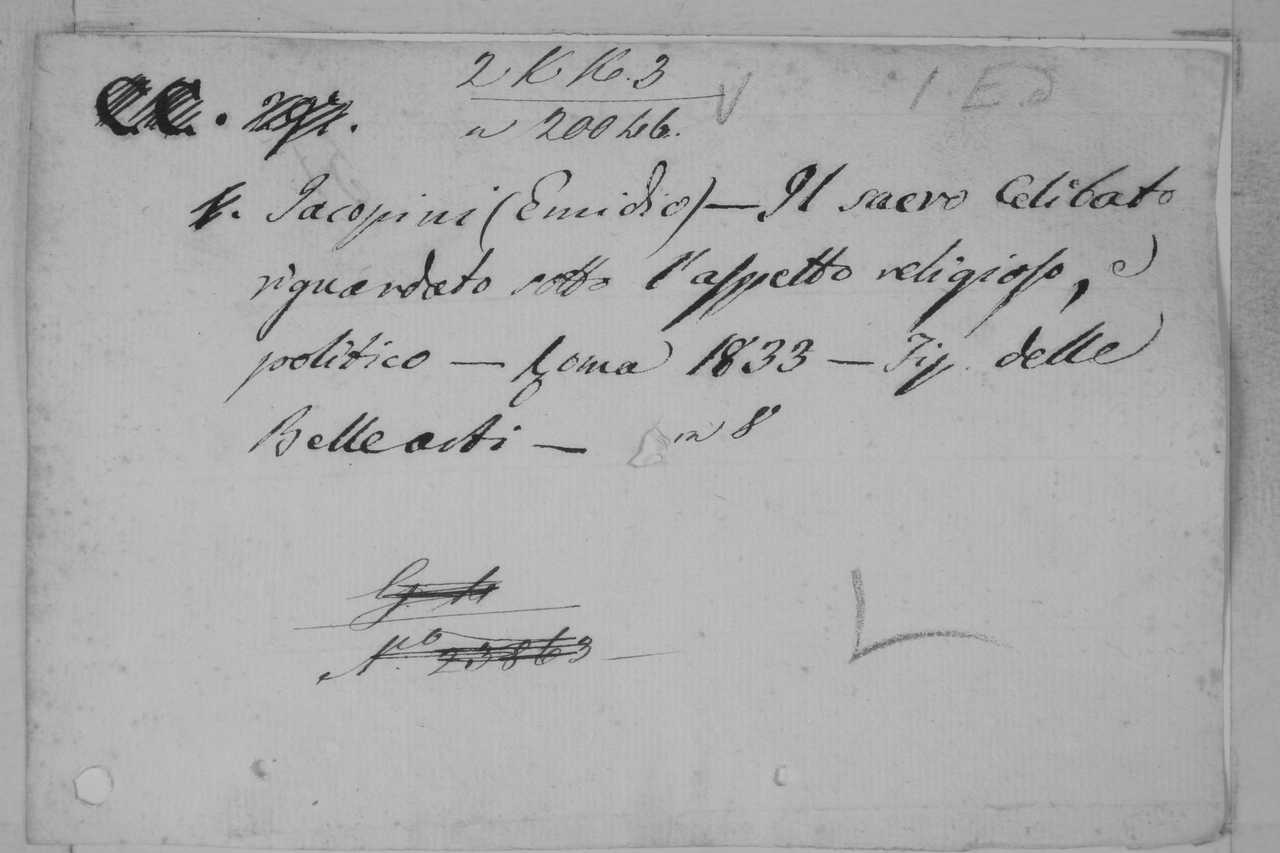 2 K K. 3
CC.
1. Jacopini (Emidio) — Il sacro Celibato
riguardato sotto l'aspetto religioso, e
politico — Roma 1833 — Tip. delle
Belle arti — in 8°
N.o 23863